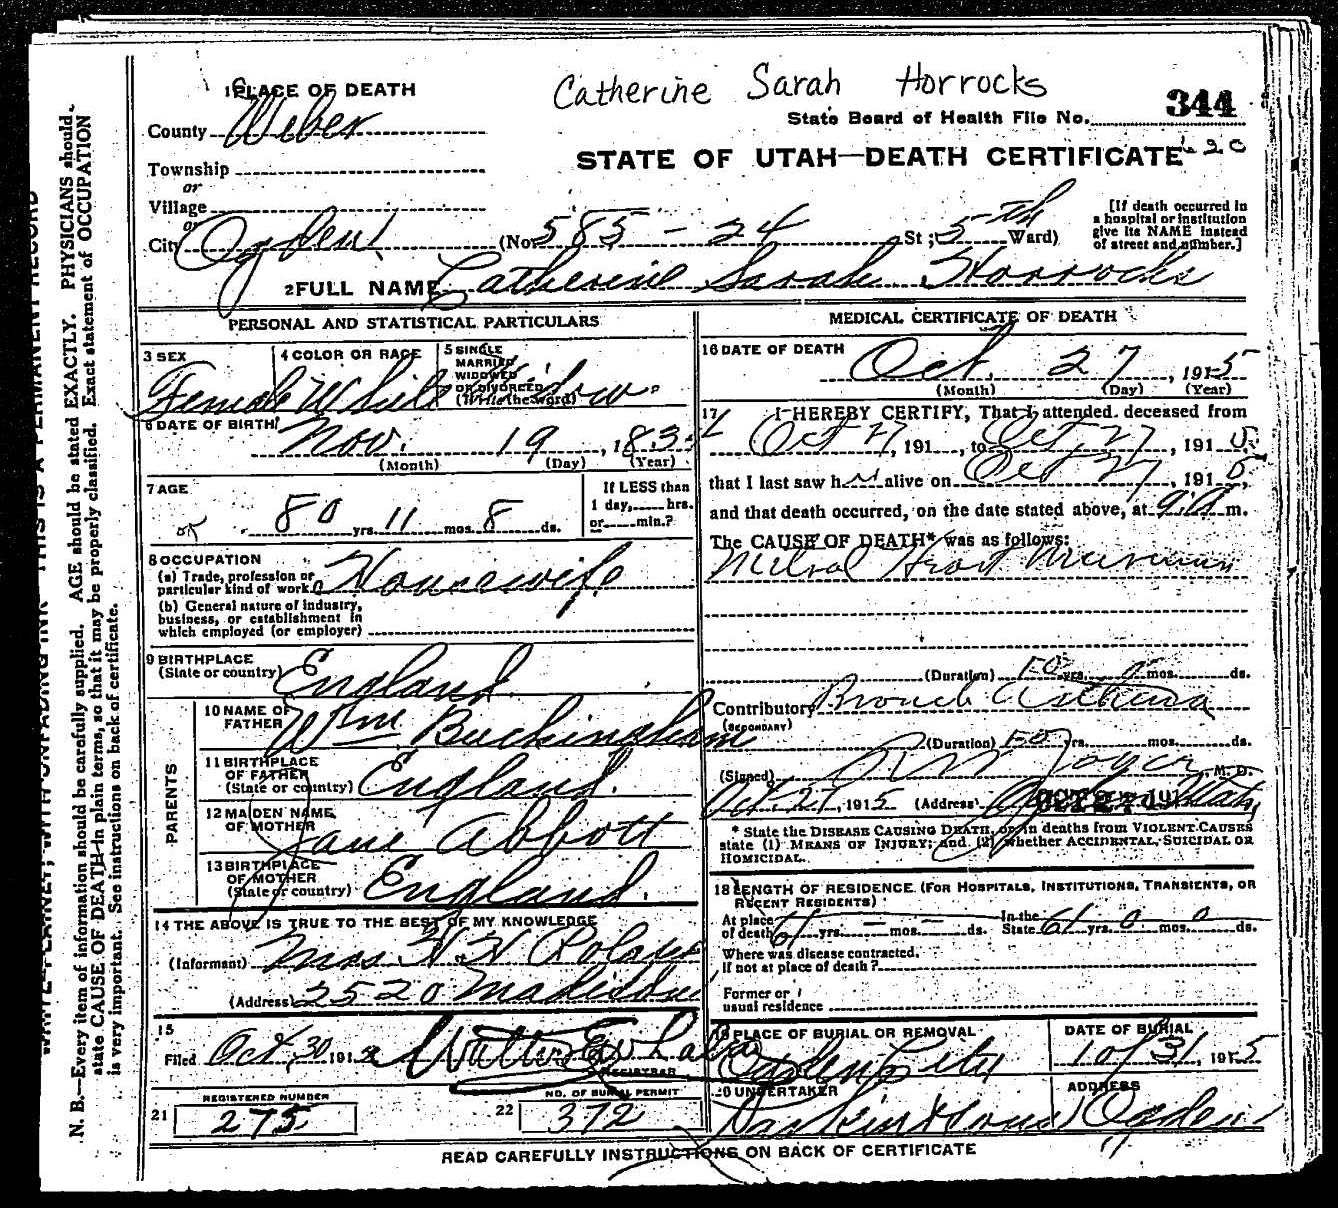 Catherine Sarah Horrocks
344
State Board of Health File No.
STATE OF UTAH—DEATH CERTIFICATE
1 PLACE OF DEATH
County Weber
Township
or
Village
or
City Ogden (No 585 - 24 St; 5th Ward)
[If death occurred in
a hospital or institution
give its NAME instead
of street and number.]
2 FULL NAME Catherine Sarah Horrocks
PERSONAL AND STATISTICAL PARTICULARS
3 SEX Female
4 COLOR OR RACE White
5 SINGLE
MARRIED
WIDOWED
OR DIVORCED
(Write the word) Widow
6 DATE OF BIRTH
Nov. 19, 183
(Month) (Day) (Year)
7 AGE
80 yrs. 11 mos. 8 ds.
If LESS than
1 day, hrs.
or min.?
8 OCCUPATION
(a) Trade, profession or
particular kind of work Housewife
(b) General nature of industry,
business, or establishment in
which employed (or employer)
9 BIRTHPLACE
(State or country) England
PARENTS
10 NAME OF
FATHER Wm Buckingham
11 BIRTHPLACE
OF FATHER
(State or country) England.
12 MAIDEN NAME
OF MOTHER Jane Abbott
13 BIRTHPLACE
OF MOTHER
(State or country) England.
14 THE ABOVE IS TRUE TO THE BEST OF MY KNOWLEDGE
(Informant) Mrs
(Address) 2520 Madison
15
Filed Oct, 30, 191
REGISTRAR
REGISTERED NUMBER
21 275
NO. OF BURIAL PERMIT
22 372
MEDICAL CERTIFICATE OF DEATH
16 DATE OF DEATH
Oct. 27, 1915
(Month) (Day) (Year)
17 I HEREBY CERTIFY, That I attended deceased from
Oct 27, 191 , to Oct, 27, 1915
that I last saw h alive on Oct 27, 1915,
and that death occurred, on the date stated above, at 9 a m.
The CAUSE OF DEATH* was as follows:
Mitral Heart Murmur
(Duration) 50 yrs. mos. ds.
Contributory Bronch Asthma
(SECONDARY)
(Duration) 50 yrs. mos. ds.
(Signed) M. D.
Oct. 27, 1915 (Address) Ogden Utah
* State the DISEASE CAUSING DEATH, or in deaths from VIOLENT CAUSES
state (1) MEANS OF INJURY; and (2) whether ACCIDENTAL, SUICIDAL OR
HOMICIDAL.
18 LENGTH OF RESIDENCE (FOR HOSPITALS, INSTITUTIONS, TRANSIENTS, OR
RECENT RESIDENTS)
At place
of death 61 yrs. — mos. — ds.
In the
State 61 yrs. 0 mos. 0 ds.
Where was disease contracted.
If not at place of death?
Former or
usual residence
19 PLACE OF BURIAL OR REMOVAL
Ogden City
DATE OF BURIAL
10/31, 1915
20 UNDERTAKER
ADDRESS
Ogden
READ CAREFULLY INSTRUCTIONS ON BACK OF CERTIFICATE
N. B.—Every item of information should be carefully supplied. AGE should be stated EXACTLY. PHYSICIANS should
state CAUSE OF DEATH in plain terms, so that it may be properly classified. Exact statement of OCCUPATION
is very important. See instructions on back of certificate.